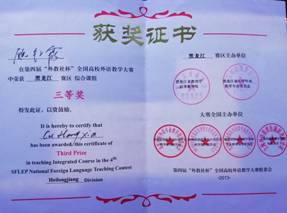 获奖证书
在第四届“外教社杯”全国高校外语教学大赛
中荣获 黑龙江 赛区 综合课组
三等奖
特发此证，以资鼓励
It is hereby to certify that
has been awarded this certificate of
Third Prize
in teaching Integrated Course in the 4th
SFLEP National Foreign Language Teaching Contest
Heilongjiang Division
黑龙江 赛区主办单位
大赛全国主办单位
第四届“外教社杯”全国高校外语教学大赛组委会
(2013)